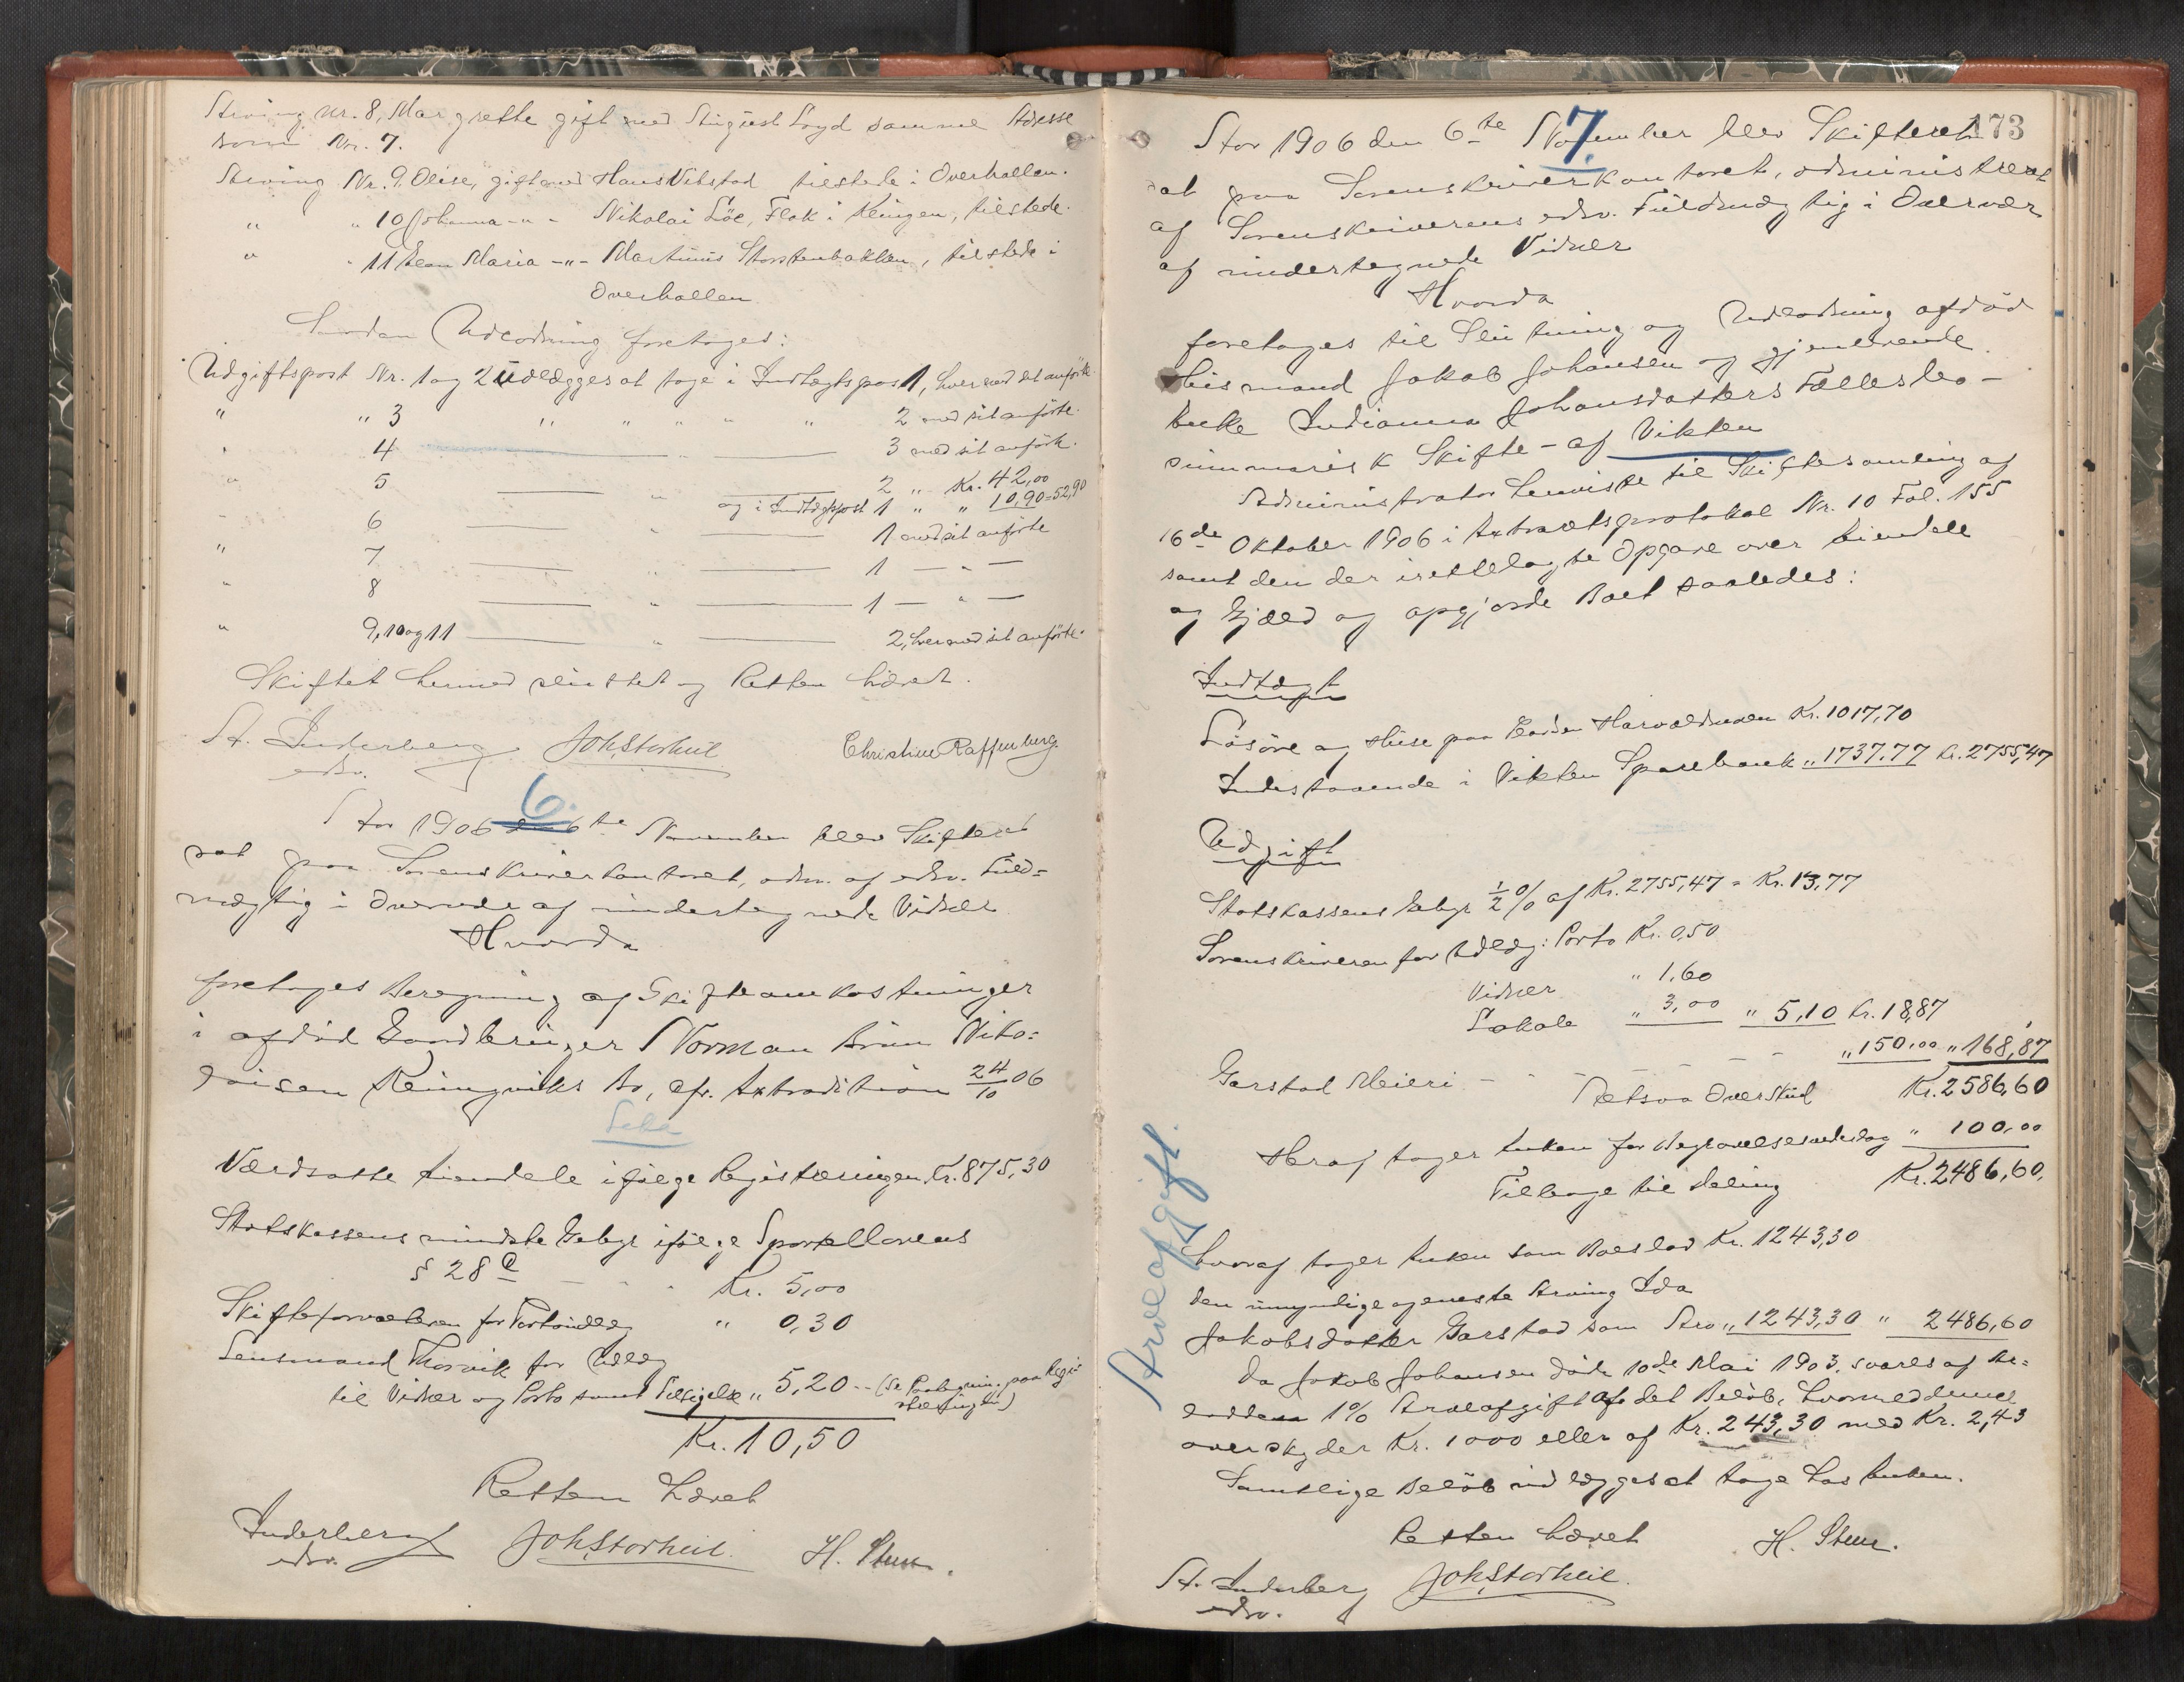 Arving Nr. 8, Margrethe gift med August Loyd samme Adresse
som Nr. 7.
Arving Nr. 9. Olise, gift med Hans Vibstad tilstede i Overhallen.
" " 10 Johanna -"- Nikolai Löe, Flak i Klingen, tilstede.
" " 11 Maria -"- Martinus Storstenbakken, tilstede i
Overhallen
Saadan Udlodning foretoges:
Udgiftspost Nr. 1 og 2 Udlægges at tage i Indtægtspost 1, hver med det anförte.
" " 3 " " " " " 2 med sit anförte.
" 4 3 med sit anförte.
" 5 " 2 " Kr. 42,00
og i Indtægtspost 1 " " 10,90 = 52,90
" 6 " 1 med sit anförte
" 7 " 1 — " —
" 8 " 1 — " —
" 9, 10 og 11 " 2, hver med sit anförte.
Skiftet hermed sluttet og Retten hævet.
A. Inderberg Joh Storheil Christine Raffenberg.
edsv.
6.
Aar 1906 den 6te November blev Skifteret
sat paa Sorenskriverkontoret, adm. af edsv. Fuld-
mægtig i Overvær af undertegnede Vidner
Hvorda
foretoges Beregning af Skifteomkostninger
i afdöd Gaardbruger Norman Brun Niko-
laisen Klingviks Bo, cfr. Extradition 24/10 06
Leka
Værdsatte Eiendele ifölge Registreringen Kr. 875,30
Statskassens mindste Gebyr ifölge Sportellovens
§ 28 e Kr. 5,00
Skifteforvalteren for Portoudlæg " 0,30
Lensmand Thorvik for Udlæg
til Vidner og Porto samt Tilsigelse " 5,20 -- (se Paategning paa Regi-
streringen)
Kr. 10,50
Retten hævet
Inderberg Joh Storheil. H. Stene.
edsv.
173
7.
Aar 1906 den 6te November blev Skifteret
sat paa Sorenskriverkontoret, administreret
af Sorenskriverens edsv. Fuldmægtig i Overvær
af undertegnede Vidner
Hvorda
foretoges til Slutning og Udlodning afdöd
Husmand Jakob Johansen og gjenlevende
Enke Indianna Johansdatters Fællesbo -
summarisk Skifte - af Vikten
Administrator henviste til Skiftesamling af
16de Oktober 1906 i Extraretsprotokol Nr. 10 Fol. 155
samt den der irettelagte Opgave over Eiendele
og Gjæld og opgjorde Boet saaledes:
Indtægt
Lösöre og Huse paa Kr. 1017,70
Indestaaende i Vikten Sparebank " 1737,77 Kr. 2755,47
Udgift
Statskassens Gebyr ½ % af Kr. 2755,47 = Kr. 13,77
Sorenskriveren for Udlæg: Porto Kr. 0,50
Vidner " 1,60
Lokale " 3,00 " 5,10 Kr. 18,87
Garstad Meieri - - - - - - " 150,00 " 168,87
Netsva Overskud Kr. 2586,60
Heraf tager Enken for Begravelsesudlæg " 100,00
Tilbage til Deling Kr. 2486,60.
hvoraf tager Enken som Boeslod Kr. 1243,30
den umyndige og eneste Arving Ida
Jakobsdatter Garstad som Arv " 1243,30 " 2486,60
Da Jakob Johansen döde 10de Mai 1903, svares af Ar-
velodden 1% Arveafgift af det Belöb, hvormed denne
overskyder Kr. 1000 eller af Kr. 243,30 med Kr. 2,43
Samtlige Belöb udlægges at tage hos Enken.
Retten hævet H. Stene.
A. Inderberg Joh Storheil.
edsv.
Arveafgift.